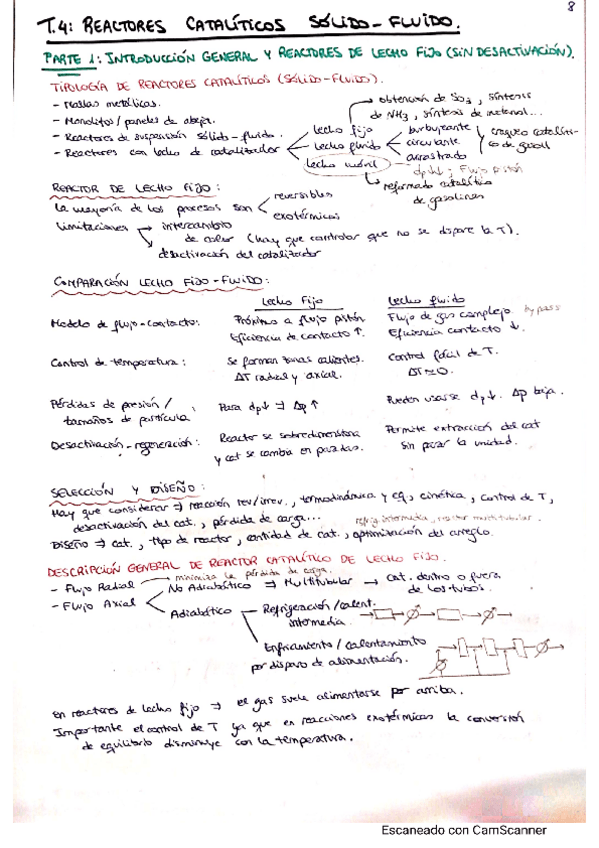 8
T.4: REACTORES CATALÍTICOS SÓLIDO-FLUIDO.
PARTE 1: INTRODUCCIÓN GENERAL Y REACTORES DE LECHO FIJO (SIN DESACTIVACIÓN).
TIPOLOGÍA DE REACTORES CATALÍTICOS (SÓLIDO-FLUIDO).
- Mallas metálicas.
- Monolitos / paneles de abeja.
- Reactores de suspensión sólido-fluido.
- Reactores con lecho de catalizador
lecho fijo
lecho fluido
lecho móvil
obtención de SO3, síntesis
de NH3, síntesis de metanol...
burbujeante
circulante
arrastrado
craqueo catalíti-
co de gasoil
dp↓↓; Flujo pistón
reformado catalítico
de gasolinas
REACTOR DE LECHO FIJO:
la mayoría de los procesos son
reversibles
exotérmicos
limitaciones
intercambio
de calor (hay que controlar que no se dispare la T).
desactivación del catalizador
COMPARACIÓN LECHO FIJO-FLUIDO:
Lecho Fijo
Lecho fluido
Modelo de flujo-contacto:
Próximos a flujo pistón
Eficiencia de contacto ↑.
Flujo de gas complejo. bypass
Eficiencia contacto ↓.
Control de temperatura:
Se forman zonas calientes.
ΔT radial y axial.
Control fácil de T.
ΔT≃0.
Pérdidas de presión /
tamaños de partícula.
Para dp↓ ⇒ Δp ↑
Pueden usarse dp↓. Δp baja.
Desactivación-regeneración:
Reactor se sobredimensiona
y cat se cambia en paradas.
Permite extracción del cat
sin parar la unidad.
SELECCIÓN Y DISEÑO:
Hay que considerar ⇒ reacción rev/irrev., termodinámica y eq., cinética, control de T,
desactivación del cat., pérdida de carga...
refrig. intermedia, reactor multitubular.
Diseño ⇒ cat., tipo de reactor, cantidad de cat., optimización del arreglo.
DESCRIPCIÓN GENERAL DE REACTOR CATALÍTICO DE LECHO FIJO.
- Flujo Radial → minimiza la pérdida de carga.
- Flujo Axial
No Adiabático ⇒ Multitubular → Cat. dentro o fuera
de los tubos.
Adiabático
Refrigeración/calent.
intermedia.
Enfriamiento / calentamiento
por disparo de alimentación.
En reactores de lecho fijo ⇒ el gas suele alimentarse por arriba.
Importante el control de T ya que en reacciones exotérmicas la conversión
de equilibrio disminuye con la temperatura.
Escaneado con CamScanner